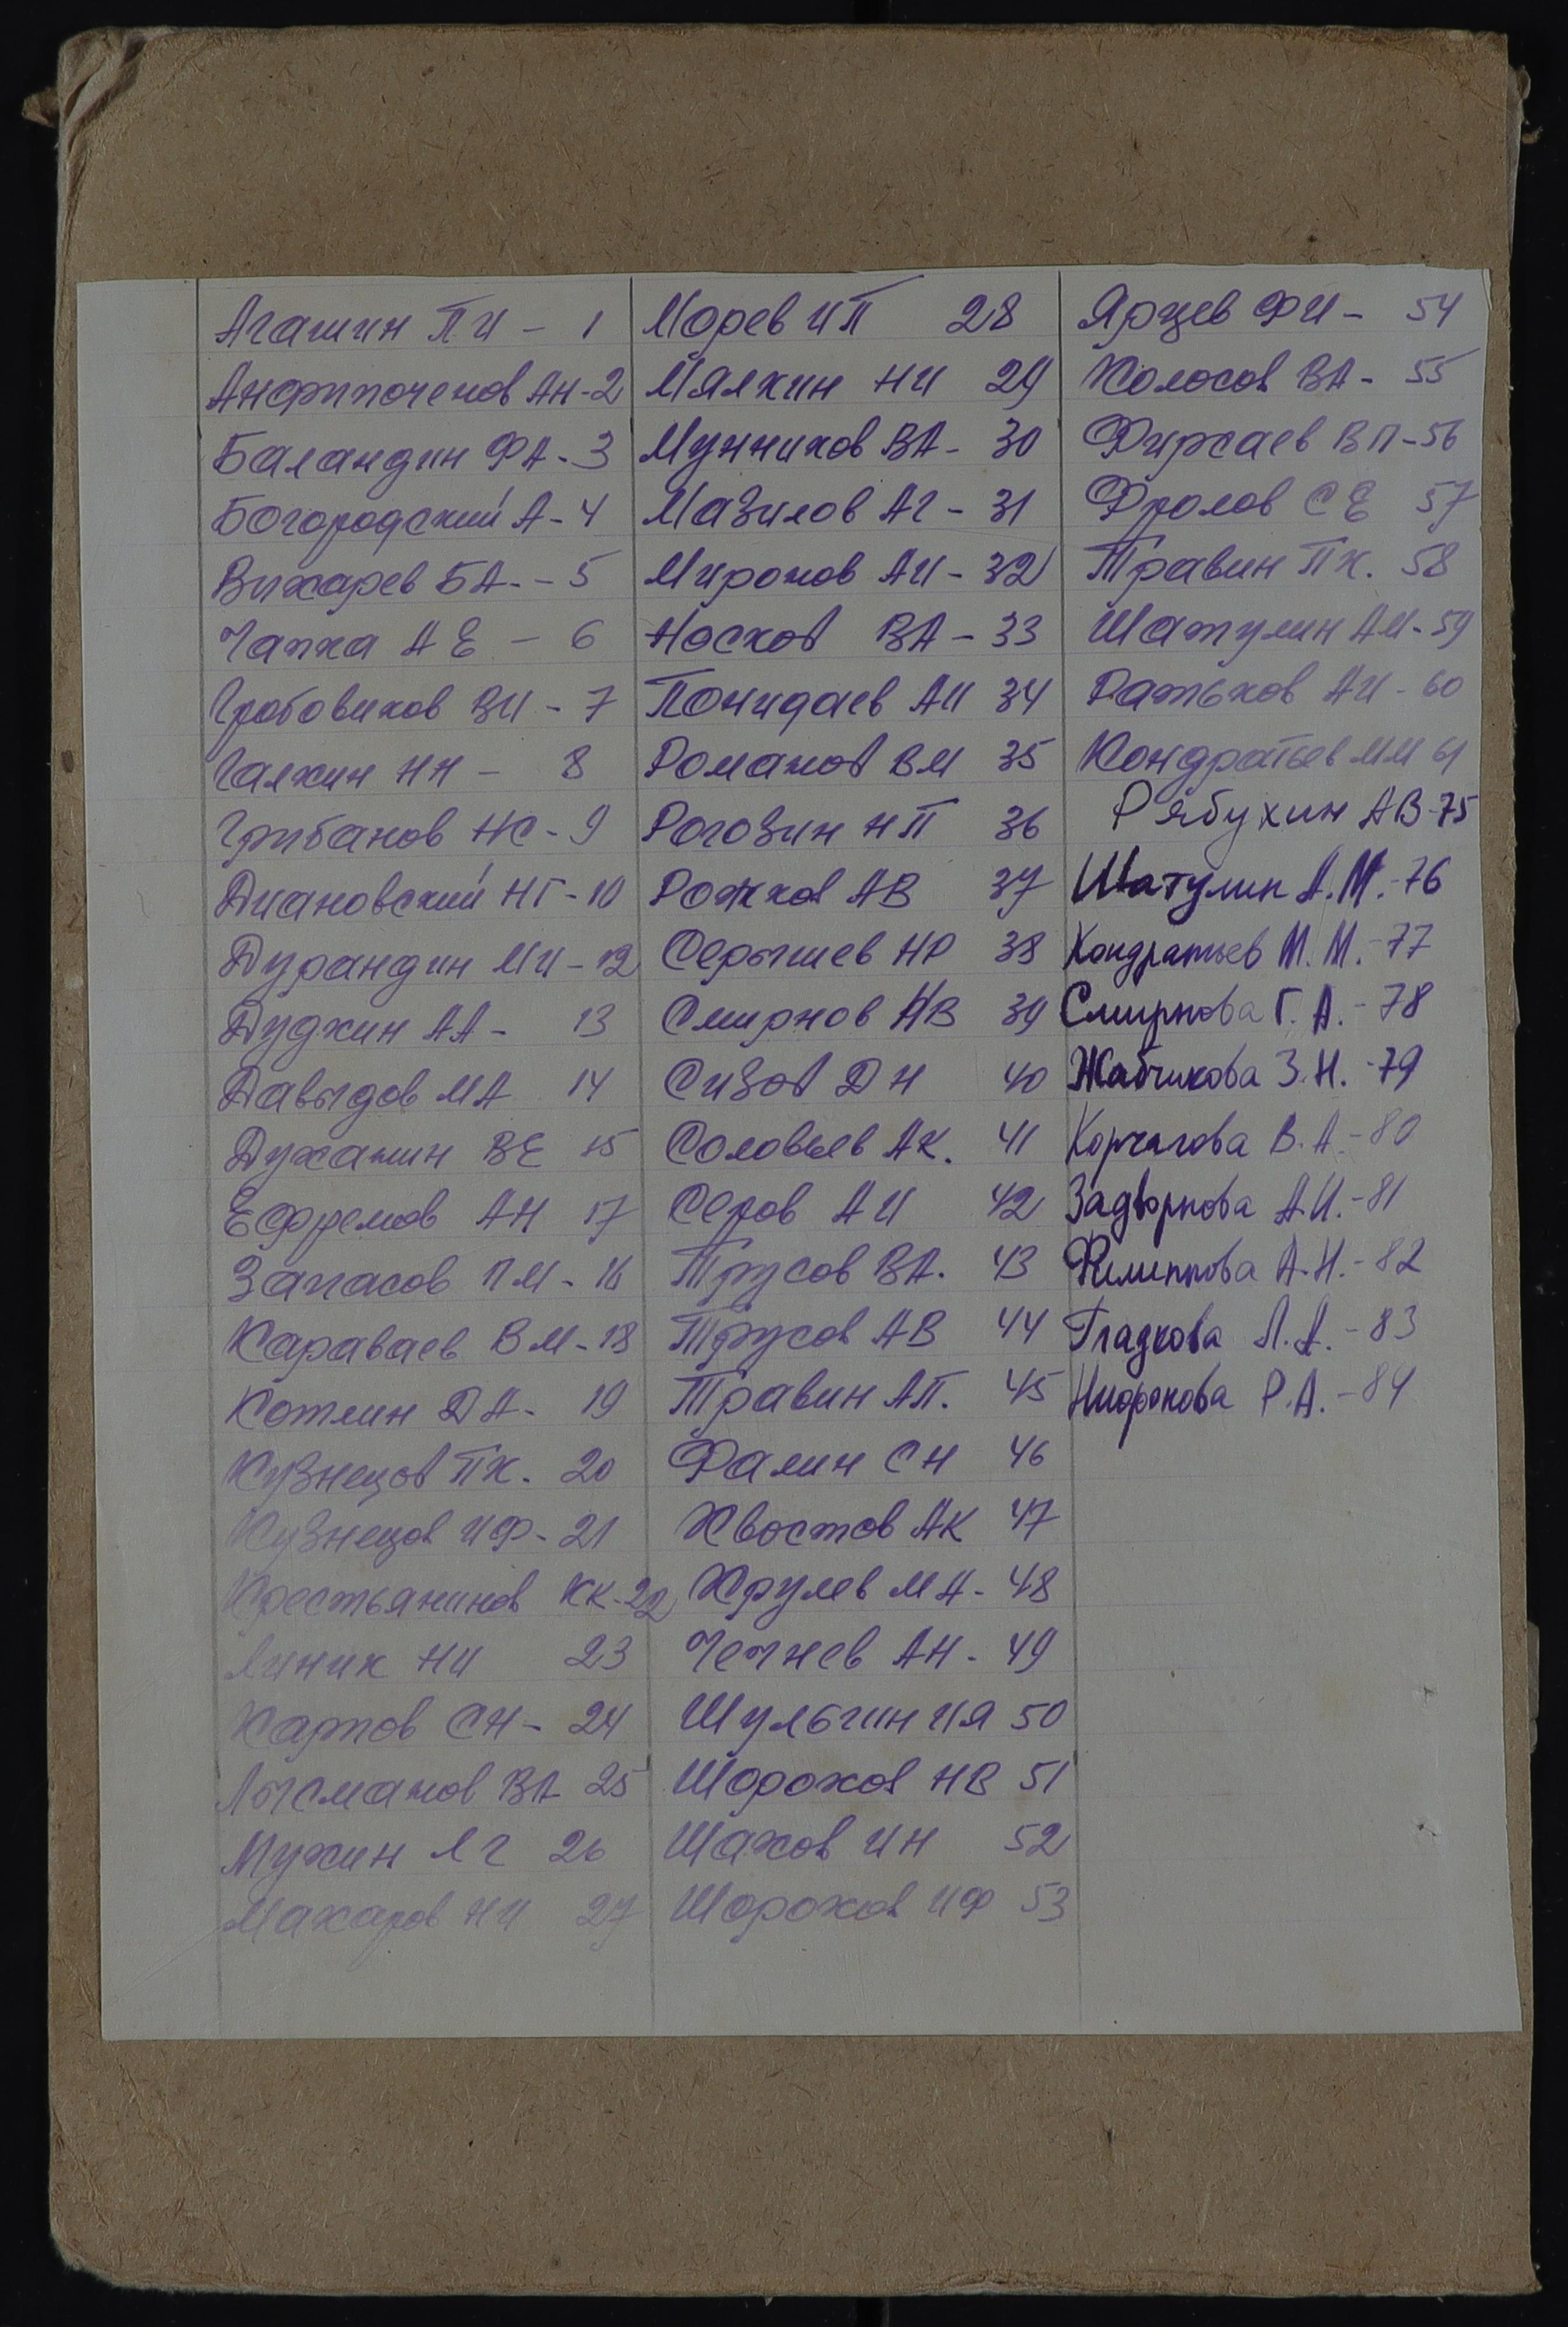 Агашин ПИ - 1
Анфиноченов АН - 2
Баландин ФА - 3
Богородский А - 4
Вихарев БА. - 5
Гапка АЕ - 6
Гробовиков ВИ - 7
Галкин НН - 8
Грибанов НС - 9
Диановский НГ - 10
Дурандин МИ - 12
Дудкин АА - 13
Давыдов МА 14
Духанин ВЕ 15
Ефремов АН 17
Запасов ПМ - 16
Караваев ВМ - 18
Котлин ДА - 19
Кузнецов ПК. 20
Кузнецов ИФ - 21
Крестьянинов КК - 22
Линик НИ 23
Карпов СН - 24
Лысманов ВА 25
Мухин ЛГ 26
Макаров НИ 27
Морев ИП 28
Мялкин НИ 29
Мунников ВА - 30
Мазилов АГ - 31
Миронов АИ - 32
Носков ВА - 33
Понидаев АИ 34
Романов ВМ 35
Рогозин НП 36
Рожков АВ 37
Серышев НР 38
Смирнов НВ 39
Сизов ДН 40
Соловьев АК. 41
Серов АИ 42
Трусов ВА. 43
Трусов АВ 44
Травин АП. 45
Фалин СН 46
Хвостов АК 47
Хрулев МА - 48
Чечнев АН - 49
Шульгин ИЯ 50
Шорохов НВ 51
Шахов ИН 52
Шорохов ИФ 53
Ярцев ФИ - 54
Колосов ВА - 55
Фирсаев ВП - 56
Фролов СЕ 57
Травин ПК. 58
Шатулин АМ - 59
Ратьков АИ - 60
Кондратьев ММ 61
Рябухин АВ - 75
Шатулин А.М. - 76
Кондратьев М.М. - 77
Смирнова Г.А. - 78
Жабчикова З.Н. - 79
Корчагова В.А. - 80
Задворнова А.И. - 81
Филиппова А.Н. - 82
Гладкова Л.А. - 83
Р.А. - 84